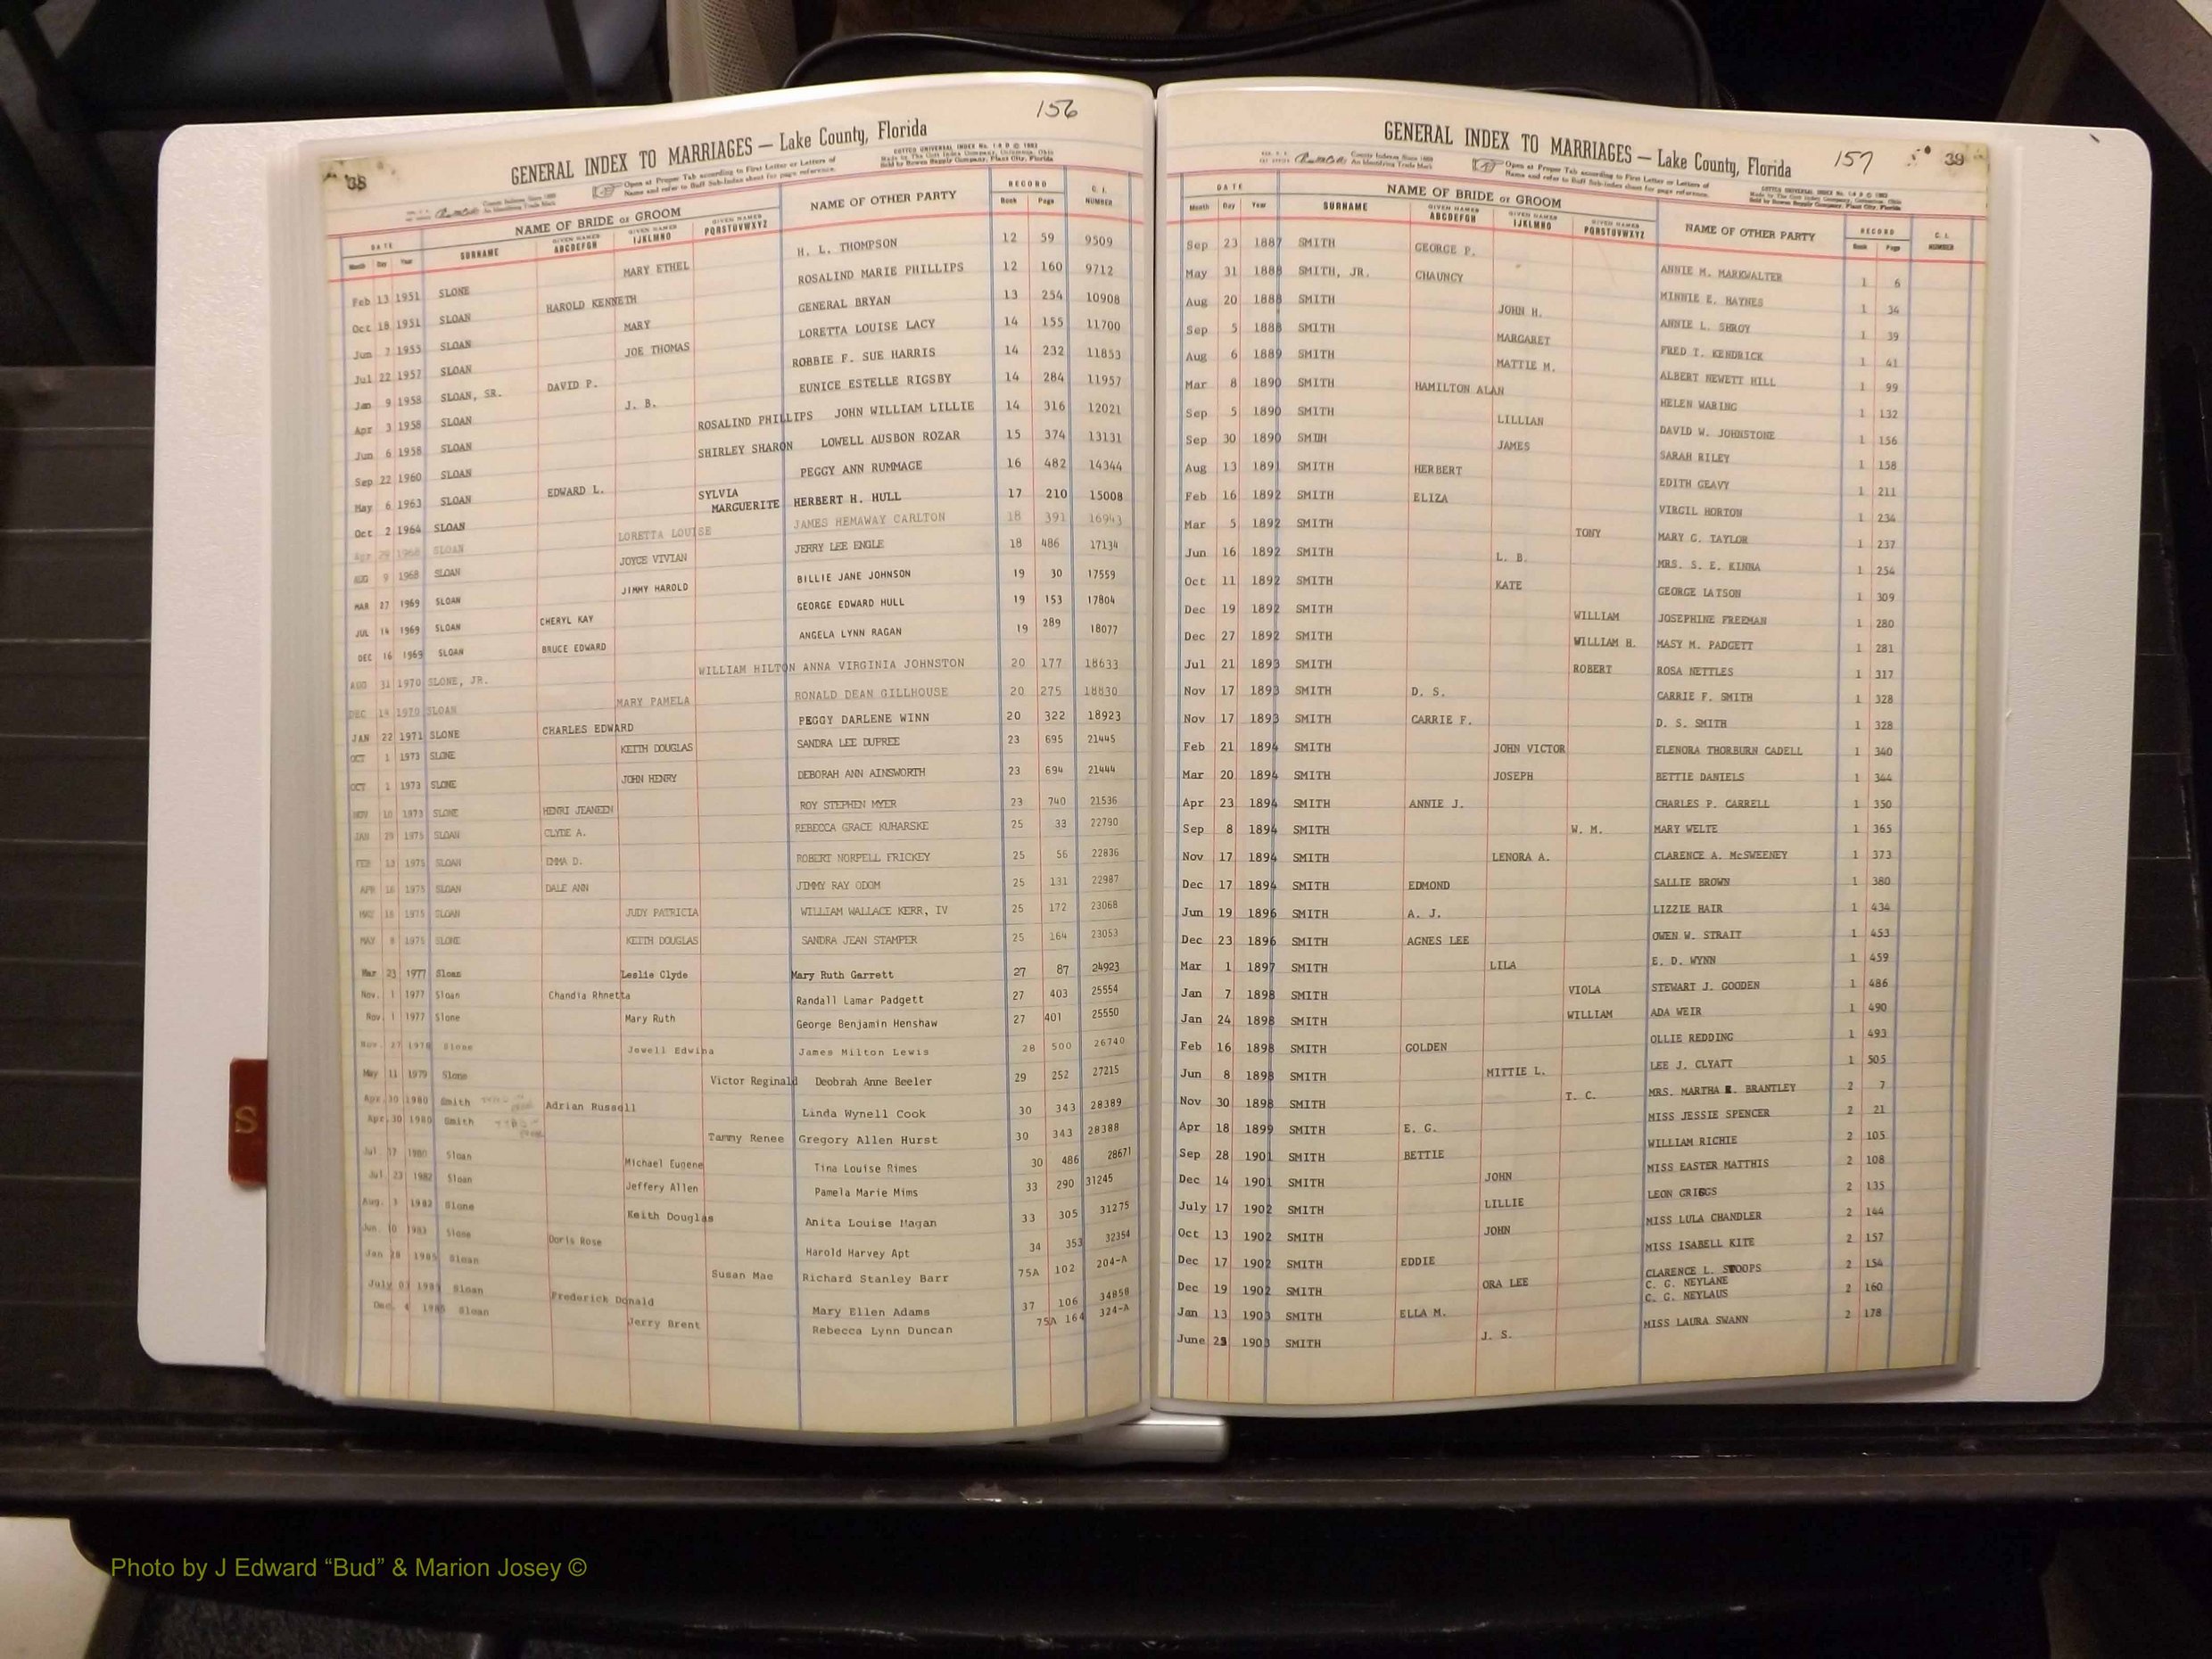 156
38
GENERAL INDEX TO MARRIAGES — Lake County, Florida
COTTCO UNIVERSAL INDEX No. 1 & D © 1983
Made by The Cott Index Company, Columbus, Ohio
Sold by Bowen Supply Company, Plant City, Florida
County Indexes Since 1888
An Identifying Trade Mark
Open at Proper Tab according to First Letter or Letters of
Name and refer to Buff Sub-Index sheet for page reference.
DATE NAME OF BRIDE or GROOM NAME OF OTHER PARTY RECORD C. I. NUMBER
Month Day Year SURNAME GIVEN NAMES ABCDEFGH GIVEN NAMES IJKLMNO GIVEN NAMES PQRSTUVWXYZ Book Page
Feb 13 1951 SLONE MARY ETHEL H. L. THOMPSON 12 59 9509
Oct 18 1951 SLOAN HAROLD KENNETH ROSALIND MARIE PHILLIPS 12 160 9712
Jun 7 1955 SLOAN MARY GENERAL BRYAN 13 254 10908
Jul 22 1957 SLOAN JOE THOMAS LORETTA LOUISE LACY 14 155 11700
Jan 9 1958 SLOAN, SR. DAVID P. ROBBIE F. SUE HARRIS 14 232 11853
Apr 3 1958 SLOAN J. B. EUNICE ESTELLE RIGSBY 14 284 11957
Jun 6 1958 SLOAN ROSALIND PHILLIPS JOHN WILLIAM LILLIE 14 316 12021
Sep 22 1960 SLOAN SHIRLEY SHARON LOWELL AUSBON ROZAR 15 374 13131
May 6 1963 SLOAN EDWARD L. PEGGY ANN RUMMAGE 16 482 14344
Oct 2 1964 SLOAN SYLVIA MARGUERITE HERBERT H. HULL 17 210 15008
Apr 29 1968 SLOAN LORETTA LOUISE JAMES HEMAWAY CARLTON 18 391 16943
AUG 9 1968 SLOAN JOYCE VIVIAN JERRY LEE ENGLE 18 486 17134
MAR 27 1969 SLOAN JIMMY HAROLD BILLIE JANE JOHNSON 19 30 17559
JUL 14 1969 SLOAN CHERYL KAY GEORGE EDWARD HULL 19 153 17804
DEC 16 1969 SLOAN BRUCE EDWARD ANGELA LYNN RAGAN 19 289 18077
AUG 31 1970 SLONE, JR. WILLIAM HILTON ANNA VIRGINIA JOHNSTON 20 177 18633
DEC 14 1970 SLOAN MARY PAMELA RONALD DEAN GILLHOUSE 20 275 18830
JAN 22 1971 SLONE CHARLES EDWARD PEGGY DARLENE WINN 20 322 18923
OCT 1 1973 SLONE KEITH DOUGLAS SANDRA LEE DUPREE 23 695 21445
OCT 1 1973 SLONE JOHN HENRY DEBORAH ANN AINSWORTH 23 694 21444
NOV 10 1973 SLONE HENRI JEANEEN ROY STEPHEN MYER 23 740 21536
JAN 29 1975 SLOAN CLYDE A. REBECCA GRACE KUHARSKE 25 33 22790
FEB 13 1975 SLOAN EMMA D. ROBERT NORPELL FRICKEY 25 56 22836
APR 16 1975 SLOAN DALE ANN JIMMY RAY ODOM 25 131 22987
18 1975 SLOAN JUDY PATRICIA WILLIAM WALLACE KERR, IV 25 172 23068
MAY 8 1975 SLONE KEITH DOUGLAS SANDRA JEAN STAMPER 25 164 23053
Mar 23 1977 Sloan Leslie Clyde Mary Ruth Garrett 27 87 24923
Nov. 1 1977 Sloan Chandia Rhnetta Randall Lamar Padgett 27 403 25554
Nov. 1 1977 Slone Mary Ruth George Benjamin Henshaw 27 401 25550
Nov. 27 1978 Slone Jewell Edwina James Milton Lewis 28 500 26740
May 11 1979 Slone Victor Reginald Deobrah Anne Beeler 29 252 27215
Apr. 30 1980 Smith Adrian Russell Linda Wynell Cook 30 343 28389
Apr. 30 1980 Smith Tammy Renee Gregory Allen Hurst 30 343 28388
Jul. 17 1980 Sloan Michael Eugene Tina Louise Rimes 30 486 28671
Jul. 23 1982 Sloan Jeffery Allen Pamela Marie Mims 33 290 31245
Aug. 3 1982 Slone Keith Douglas Anita Louise Hagan 33 305 31275
Jun. 10 1983 Slone Doris Rose Harold Harvey Apt 34 353 32354
Jan 28 1985 Sloan Susan Mae Richard Stanley Barr 75A 102 204-A
July 03 1985 Sloan Frederick Donald Mary Ellen Adams 37 106 34858
Dec. 4 1985 Sloan Jerry Brent Rebecca Lynn Duncan 75A 164 324-A
157
39
GENERAL INDEX TO MARRIAGES — Lake County, Florida
County Indexes Since 1888
An Identifying Trade Mark
Open at Proper Tab according to First Letter or Letters of
Name and refer to Buff Sub-Index sheet for page reference.
COTTCO UNIVERSAL INDEX No. 1 & D © 1983
Made by The Cott Index Company, Columbus, Ohio
Sold by Bowen Supply Company, Plant City, Florida
DATE NAME OF BRIDE or GROOM NAME OF OTHER PARTY RECORD C. I. NUMBER
Month Day Year SURNAME GIVEN NAMES ABCDEFGH GIVEN NAMES IJKLMNO GIVEN NAMES PQRSTUVWXYZ Book Page
Sep 23 1887 SMITH GEORGE P. ANNIE M. MARKWALTER 1 6
May 31 1888 SMITH, JR. CHAUNCY MINNIE E. HAYNES 1 34
Aug 20 1888 SMITH JOHN H. ANNIE L. SHROY 1 39
Sep 5 1888 SMITH MARGARET FRED T. KENDRICK 1 41
Aug 6 1889 SMITH MATTIE M. ALBERT NEWETT HILL 1 99
Mar 8 1890 SMITH HAMILTON ALAN HELEN WARING 1 132
Sep 5 1890 SMITH LILLIAN DAVID W. JOHNSTONE 1 156
Sep 30 1890 SMITH JAMES SARAH RILEY 1 158
Aug 13 1891 SMITH HERBERT EDITH GEAVY 1 211
Feb 16 1892 SMITH ELIZA VIRGIL HORTON 1 234
Mar 5 1892 SMITH TONY MARY G. TAYLOR 1 237
Jun 16 1892 SMITH L. B. MRS. S. E. KINNA 1 254
Oct 11 1892 SMITH KATE GEORGE LATSON 1 309
Dec 19 1892 SMITH WILLIAM JOSEPHINE FREEMAN 1 280
Dec 27 1892 SMITH WILLIAM H. MASY M. PADGETT 1 281
Jul 21 1893 SMITH ROBERT ROSA NETTLES 1 317
Nov 17 1893 SMITH D. S. CARRIE F. SMITH 1 328
Nov 17 1893 SMITH CARRIE F. D. S. SMITH 1 328
Feb 21 1894 SMITH JOHN VICTOR ELENORA THORBURN CADELL 1 340
Mar 20 1894 SMITH JOSEPH BETTIE DANIELS 1 344
Apr 23 1894 SMITH ANNIE J. CHARLES P. CARRELL 1 350
Sep 8 1894 SMITH W. M. MARY WELTE 1 365
Nov 17 1894 SMITH LENORA A. CLARENCE A. McSWEENEY 1 373
Dec 17 1894 SMITH EDMOND SALLIE BROWN 1 380
Jun 19 1896 SMITH A. J. LIZZIE HAIR 1 434
Dec 23 1896 SMITH AGNES LEE OWEN W. STRAIT 1 453
Mar 1 1897 SMITH LILA E. D. WYNN 1 459
Jan 7 1898 SMITH VIOLA STEWART J. GOODEN 1 486
Jan 24 1898 SMITH WILLIAM ADA WEIR 1 490
Feb 16 1898 SMITH GOLDEN OLLIE REDDING 1 493
Jun 8 1898 SMITH MITTIE L. LEE J. CLYATT 1 505
Nov 30 1898 SMITH T. C. MRS. MARTHA R. BRANTLEY 2 7
Apr 18 1899 SMITH E. G. MISS JESSIE SPENCER 2 21
Sep 28 1901 SMITH BETTIE WILLIAM RICHIE 2 105
Dec 14 1901 SMITH JOHN MISS EASTER MATTHIS 2 108
July 17 1902 SMITH LILLIE LEON GRIGGS 2 135
Oct 13 1902 SMITH JOHN MISS LULA CHANDLER 2 144
Dec 17 1902 SMITH EDDIE MISS ISABELL KITE 2 157
Dec 19 1902 SMITH ORA LEE CLARENCE L. STOOPS 2 154
Jan 13 1903 SMITH ELLA M. C. G. NEYLANE
C. G. NEYLAUS 2 160
June 23 1903 SMITH J. S. MISS LAURA SWANN 2 178
S
Photo by J Edward “Bud” & Marion Josey ©